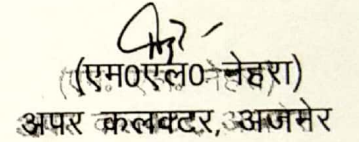 (एम०एल० नेहरा)
अपर कलक्टर, अजमेर